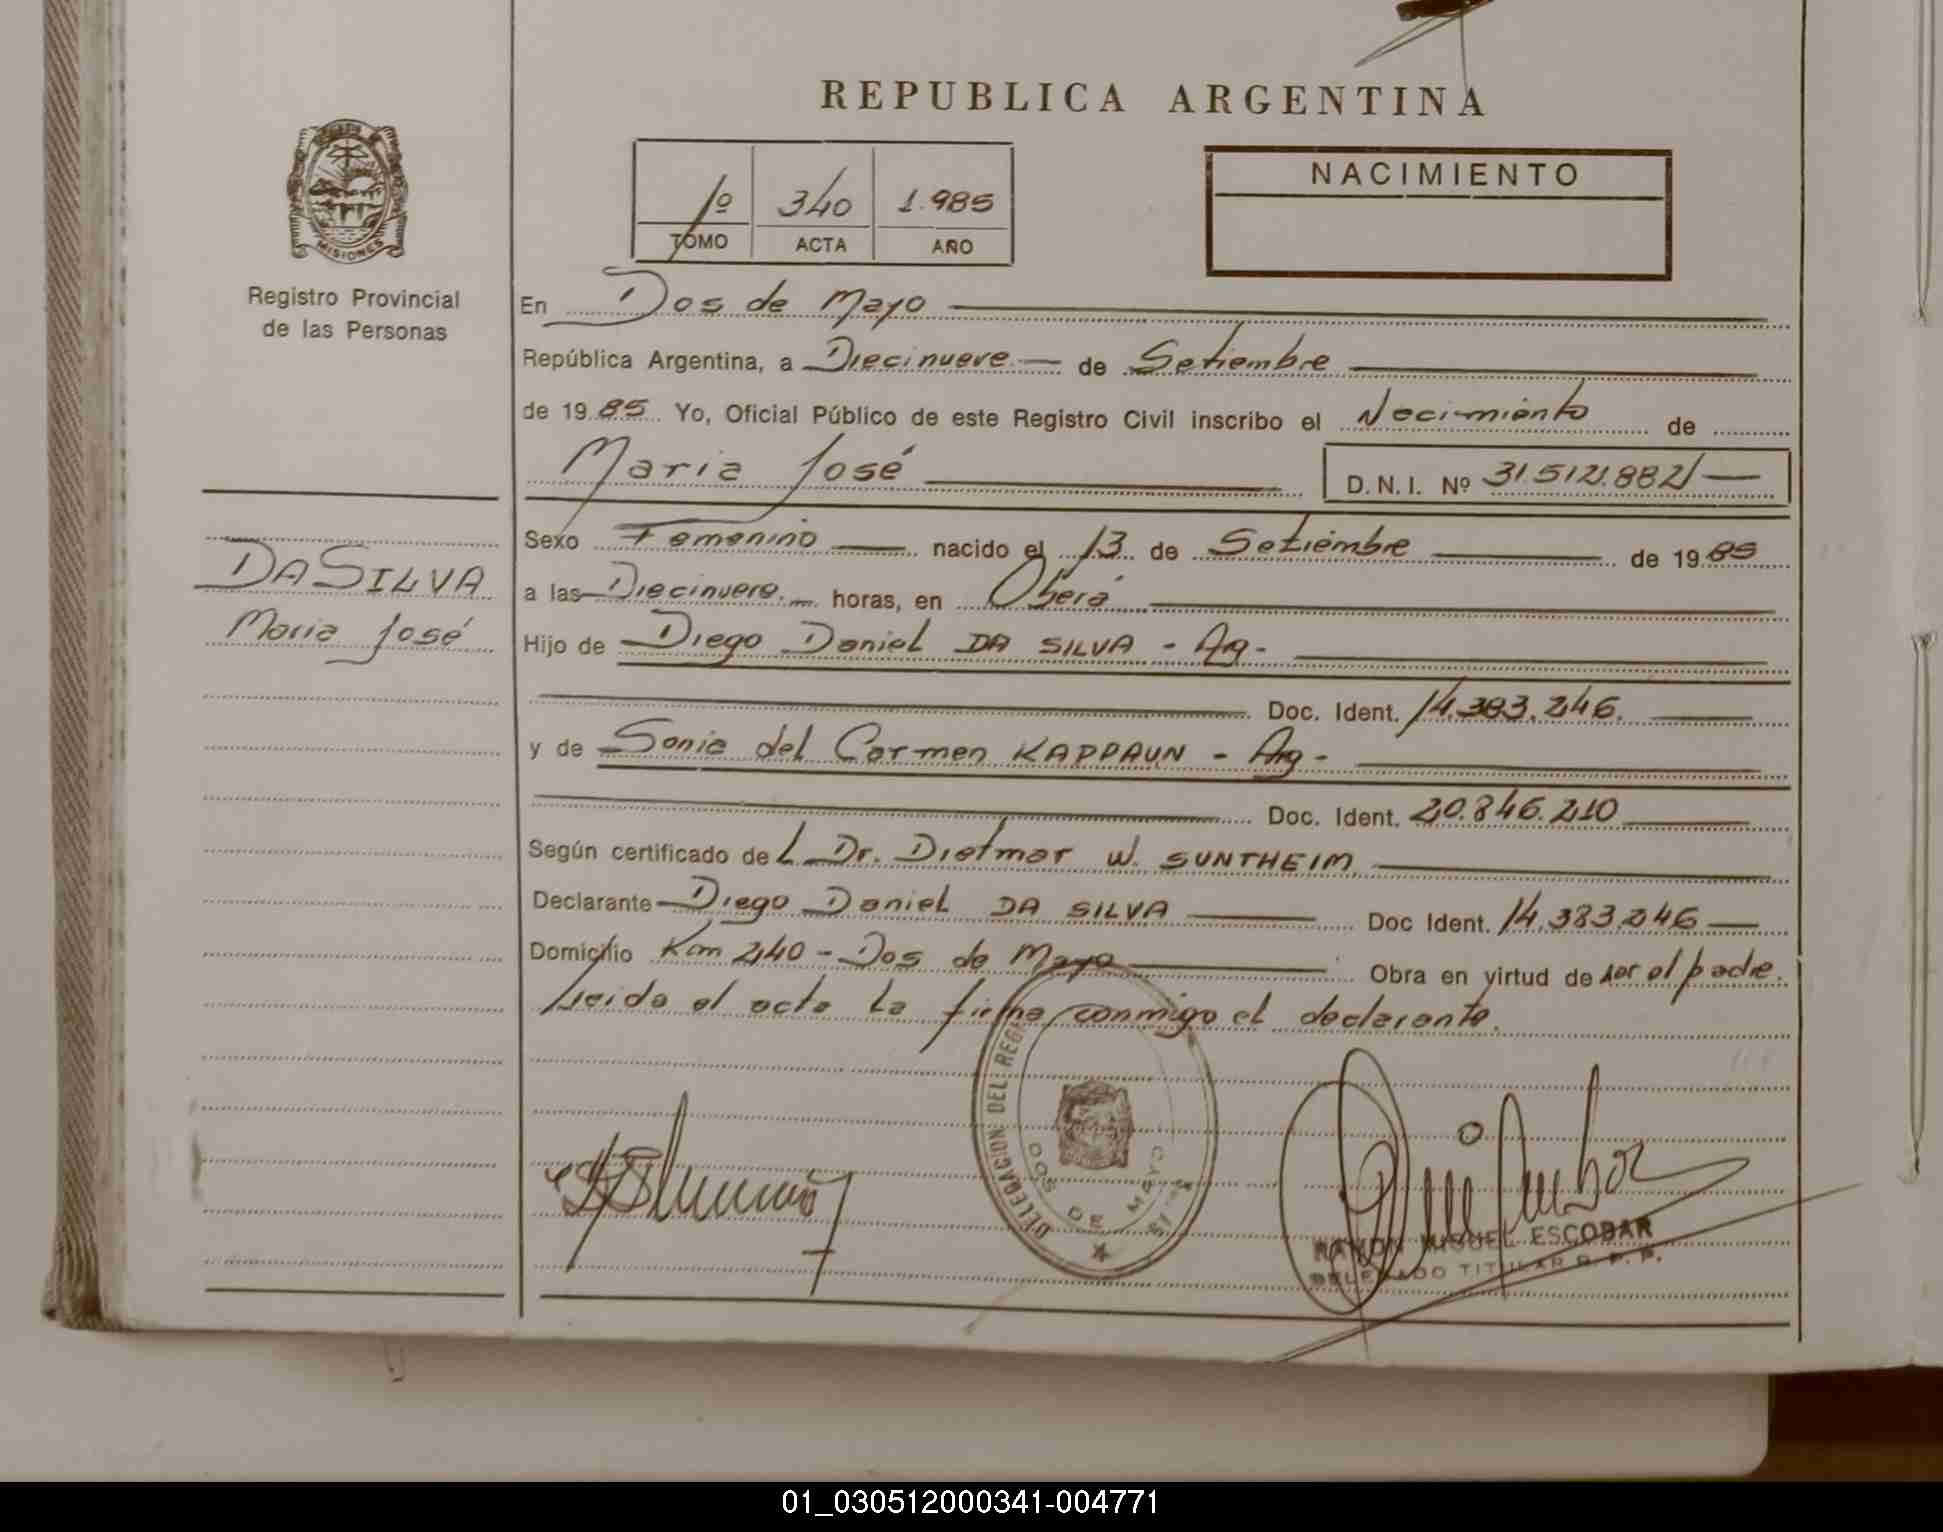 REPUBLICA ARGENTINA
MISIONES
Registro Provincial
de las Personas
1º 340 1.985
TOMO ACTA AÑO
NACIMIENTO
En Dos de Mayo
República Argentina, a Diecinueve de Setiembre
de 1985 Yo, Oficial Público de este Registro Civil inscribo el Nacimiento de
Maria José D.N.I. Nº 31.512.882
Sexo Femenino nacido el 13 de Setiembre de 1985
DA SILVA
Maria José
a las Diecinueve horas, en Oberá
Hijo de Diego Daniel DA SILVA - Arg-
Doc. Ident. 14.383.246
y de Sonia del Carmen KAPPAUN - Arg-
Doc. Ident. 20.846.210
Según certificado del Dr. Dietmar W. SUNTHEIM
Declarante Diego Daniel DA SILVA Doc Ident. 14.383.246
Domicilio Km 240 - Dos de Mayo Obra en virtud de ser el padre.
Leida el acta la firma conmigo el declarante.
DELEGACION DEL REG
DOS DE MAYO
RAMON MIGUEL ESCOBAR
DELEGADO TITULAR R. P. P.
01_030512000341-004771